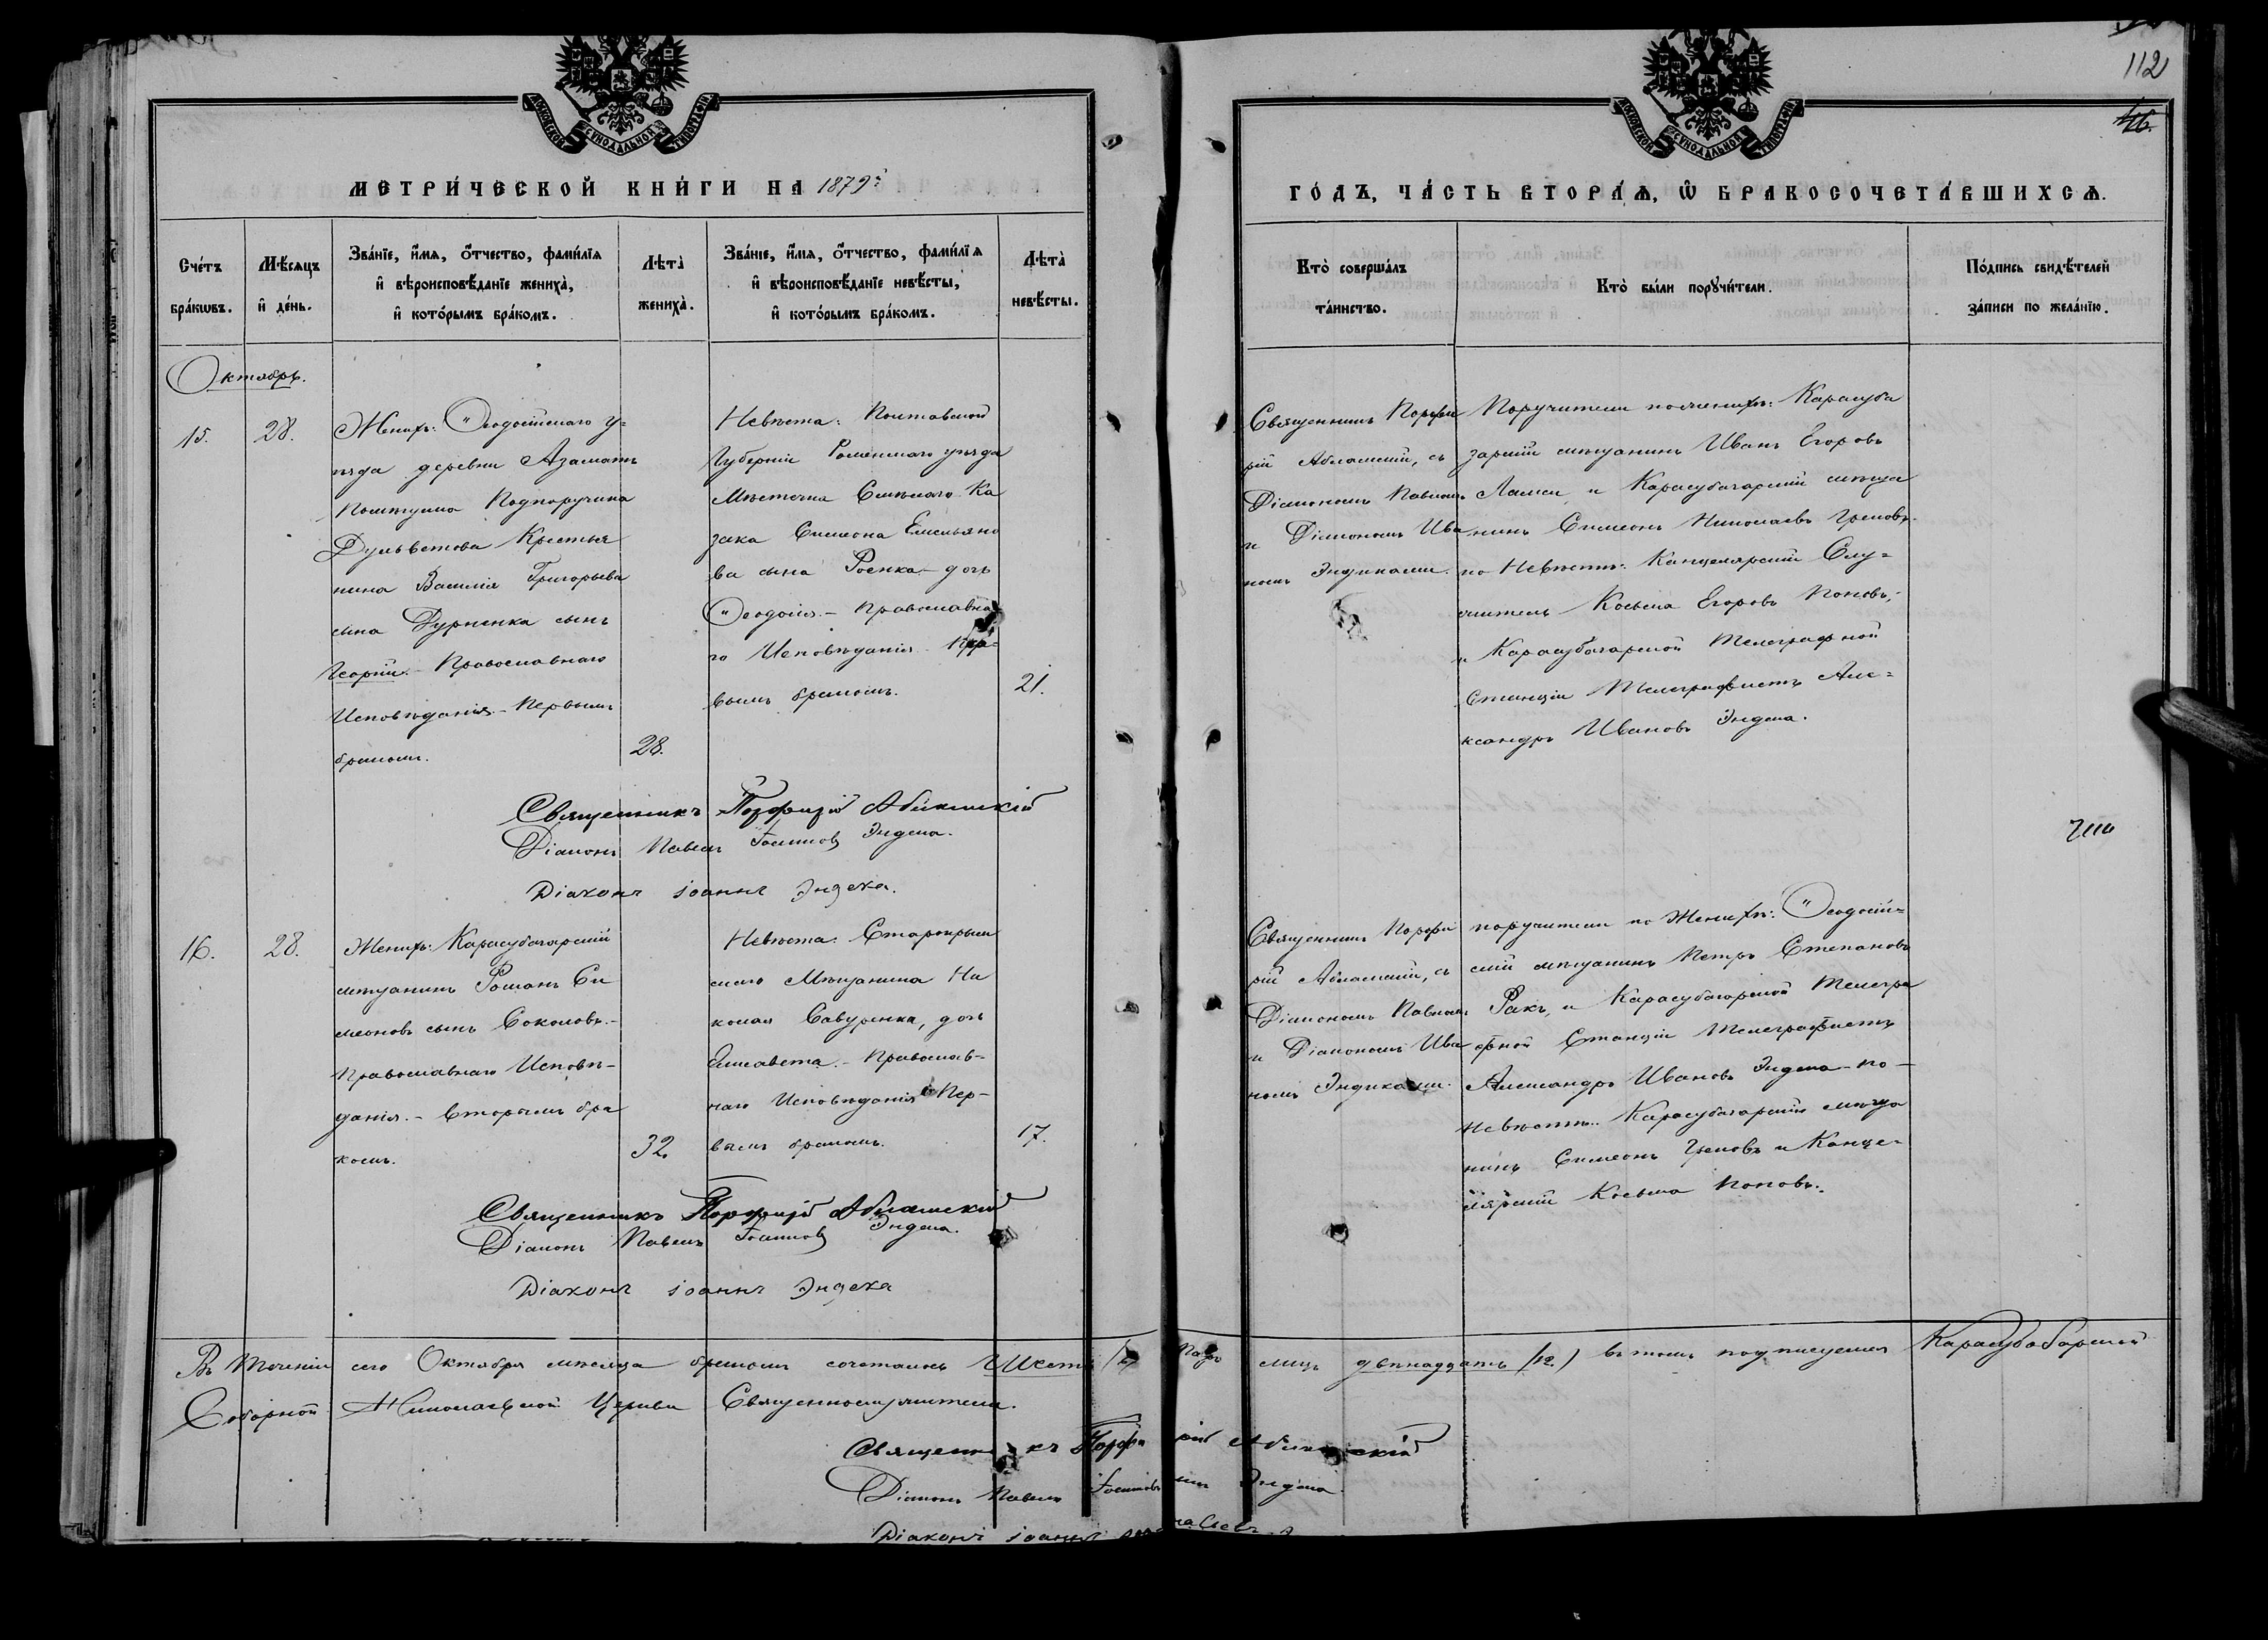 112
46.
МОСКОВСКОЙ СѴНОДАЛЬНОЙ ТИПОГРАФІИ
МОСКОВСКОЙ СѴНОДАЛЬНОЙ ТИПОГРАФІИ
МЕТРИ́ЧЕСКОЙ КНИ́ГИ НА 1879й
ГО́ДЪ, ЧА́СТЬ ВТОРА́Я, Ѽ БРАКОСОЧЕТА́ВШИХСЯ.
Сче́тъ бра́кѡвъ.
Мѣ́сяцъ и҆ де́нь.
Зва́нїе, и҆́мя, ѻ҆́тчество, фами́лїя и҆ вѣроисповѣ́данїе жениха̀, и҆ кото́рымъ бра́комъ.
Лѣта̀ жениха̀.
Зва́нїе, и҆́мя, ѻ҆́тчество, фами́лїя и҆ вѣроисповѣ́данїе невѣ́сты, и҆ кото́рымъ бра́комъ.
Лѣта̀ невѣ́сты.
Кто̀ соверша́лъ та́инство.
Кто̀ бы́ли порꙋчи́тели.
По́дпись свидѣ́телей за́писи по жела́нїю.
Октябрь.
15.
28.
Женихъ: Ѳеодосійскаго у=
ѣзда деревни Азаматъ
Помѣщика Подпоручика
Дульветова Крестья
нина Василія Григорьева
сына Дурненка сынъ
Георгій. - Православнаго
Исповѣданія. - Первымъ
бракомъ.
28.
Невѣста: Полтавской
Губерніи Роменскаго уѣзда
Мѣстечка Смѣлаго Ка
зака Симеона Емельяно
ва сына Роенка - дочь
Ѳеодосія. - Православна
го Исповѣданія
вымъ бракомъ.
21.
Священникъ Порфи
рій Абламскій, съ
Діакономъ Павломъ
и Діакономъ Ива
номъ Эндеками.
Поручители по женихѣ: Карасуба
зарскій мѣщанинъ Иванъ Егоровъ
и Карасубазарскій мѣща
нинъ Симеонъ Николаевъ Грековъ.
по Невѣстѣ: Канцелярскій Слу=
житель Косьма Егоровъ Поповъ,
и Карасубазарской Телеграфной
Станціи Телеграфистъ Але=
ксандръ Ивановъ Эндека.
Священникъ Порфирій Абламскій
Діаконъ Павелъ Іоанновъ Эндека.
Діаконъ Іоаннъ Эндека.
16.
28.
Женихъ: Карасубазарскій
мѣщанинъ Романъ Си
меоновъ сынъ Соколовъ. -
Православнаго Исповѣ-
данія. - Вторымъ бра
комъ.
32.
Невѣста: Старокрым
скаго Мѣщанина Ни
колая Савуренка, дочь
Елисавета. - Православ-
наго Исповѣданія Пер-
вымъ бракомъ.
17.
Священникъ Порфи
рій Абламскій, съ
Діакономъ Павломъ
и Діакономъ Ива
номъ Эндеками.
поручители по Женихѣ: Ѳеодосій=
скій мѣщанинъ Петръ Степановъ
Ракъ, и Карасубазарской Телегра
фной Станціи Телеграфистъ
Александръ Ивановъ Эндека - по -
Невѣстѣ: Карасубазарскій мѣща
нинъ Симеонъ Грековъ и Канце-
лярскій Косьма Поповъ.
Священникъ Порфирій Абламскій
Діаконъ Павелъ Іоанновъ Эндека.
Діаконъ Іоаннъ Эндека
Въ теченіи сего Октября мѣсяца бракомъ сочетались Шесть паръ лицъ двѣнадцать (12.) въ томъ подписуемся Карасубазарской
Соборной Николаевской Церкви Священнослужители.
Священникъ Порфирій Абламскій
Діаконъ Павелъ Іоанновъ Эндека.
Діаконъ Іоаннъ